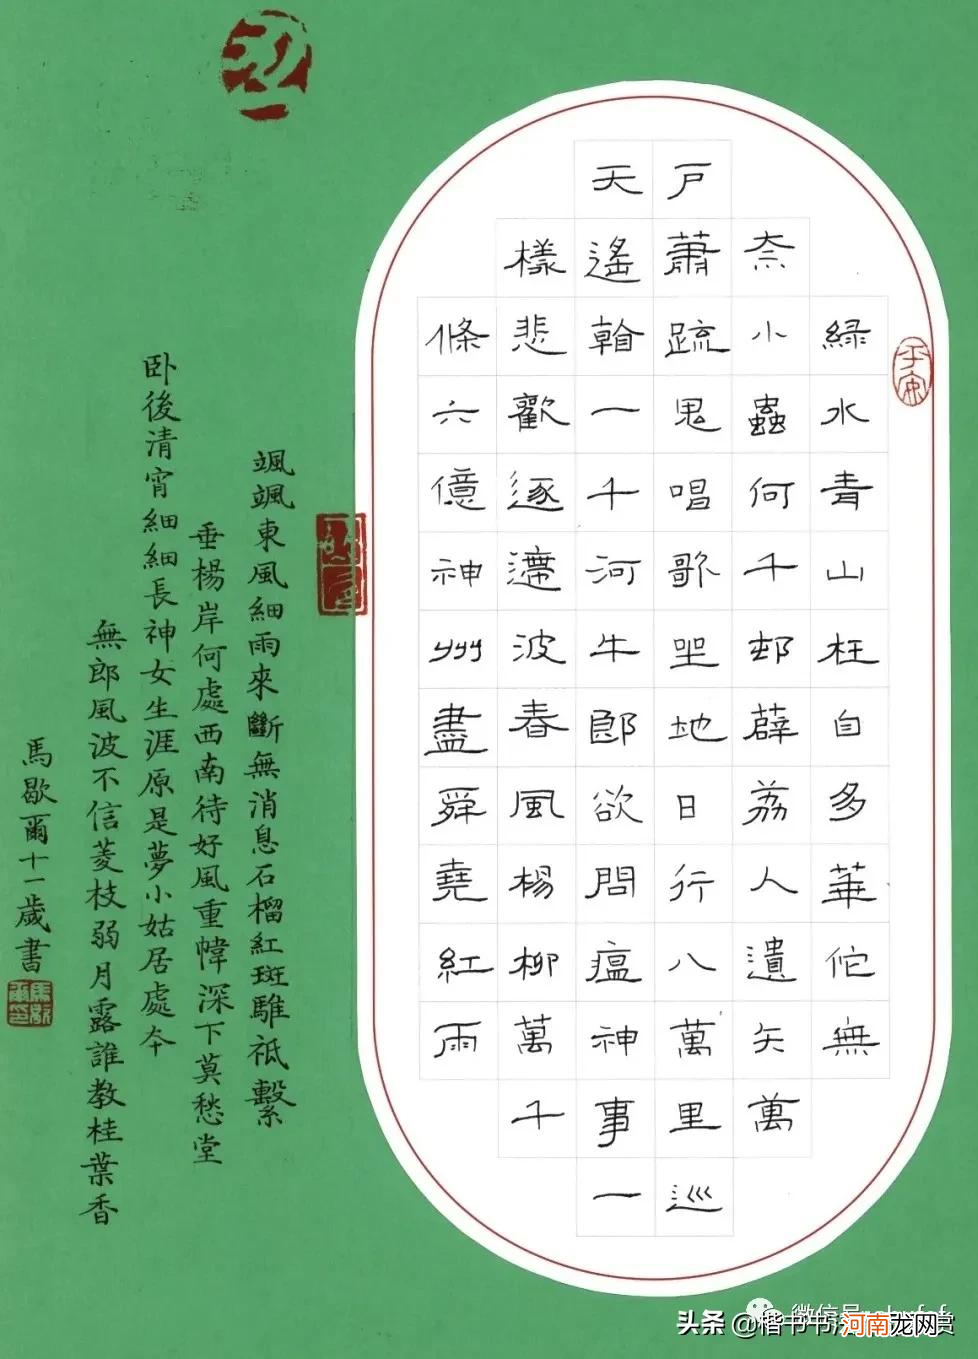 緑水青山枉自多華佗無
奈小蟲何千邨薜荔人遺矢萬
戸蕭疏鬼唱歌坐地日行八萬里巡
天遙看一千河牛郎欲問瘟神事一
樣悲歡逐遰波春風楊柳萬千
條六億神州盡舜堯紅雨
平安
颯颯東風細雨來斷無消息石榴紅斑騅祗繫
垂楊岸何處西南待好風重幃深下莫愁堂
卧後清宵細細長神女生涯原是夢小姑居處本
無郎風波不信菱枝弱月露誰教桂葉香
馬歇爾十一歲書
微信号
头条 @楷书书 河南龙网 赏